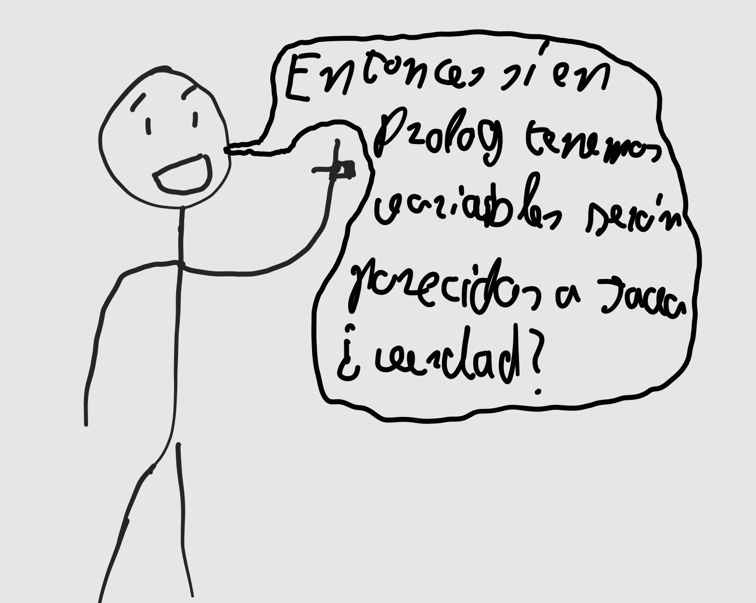 Entonces sí en
Prolog tenemos
variables serán
parecidas a Java
¿verdad?